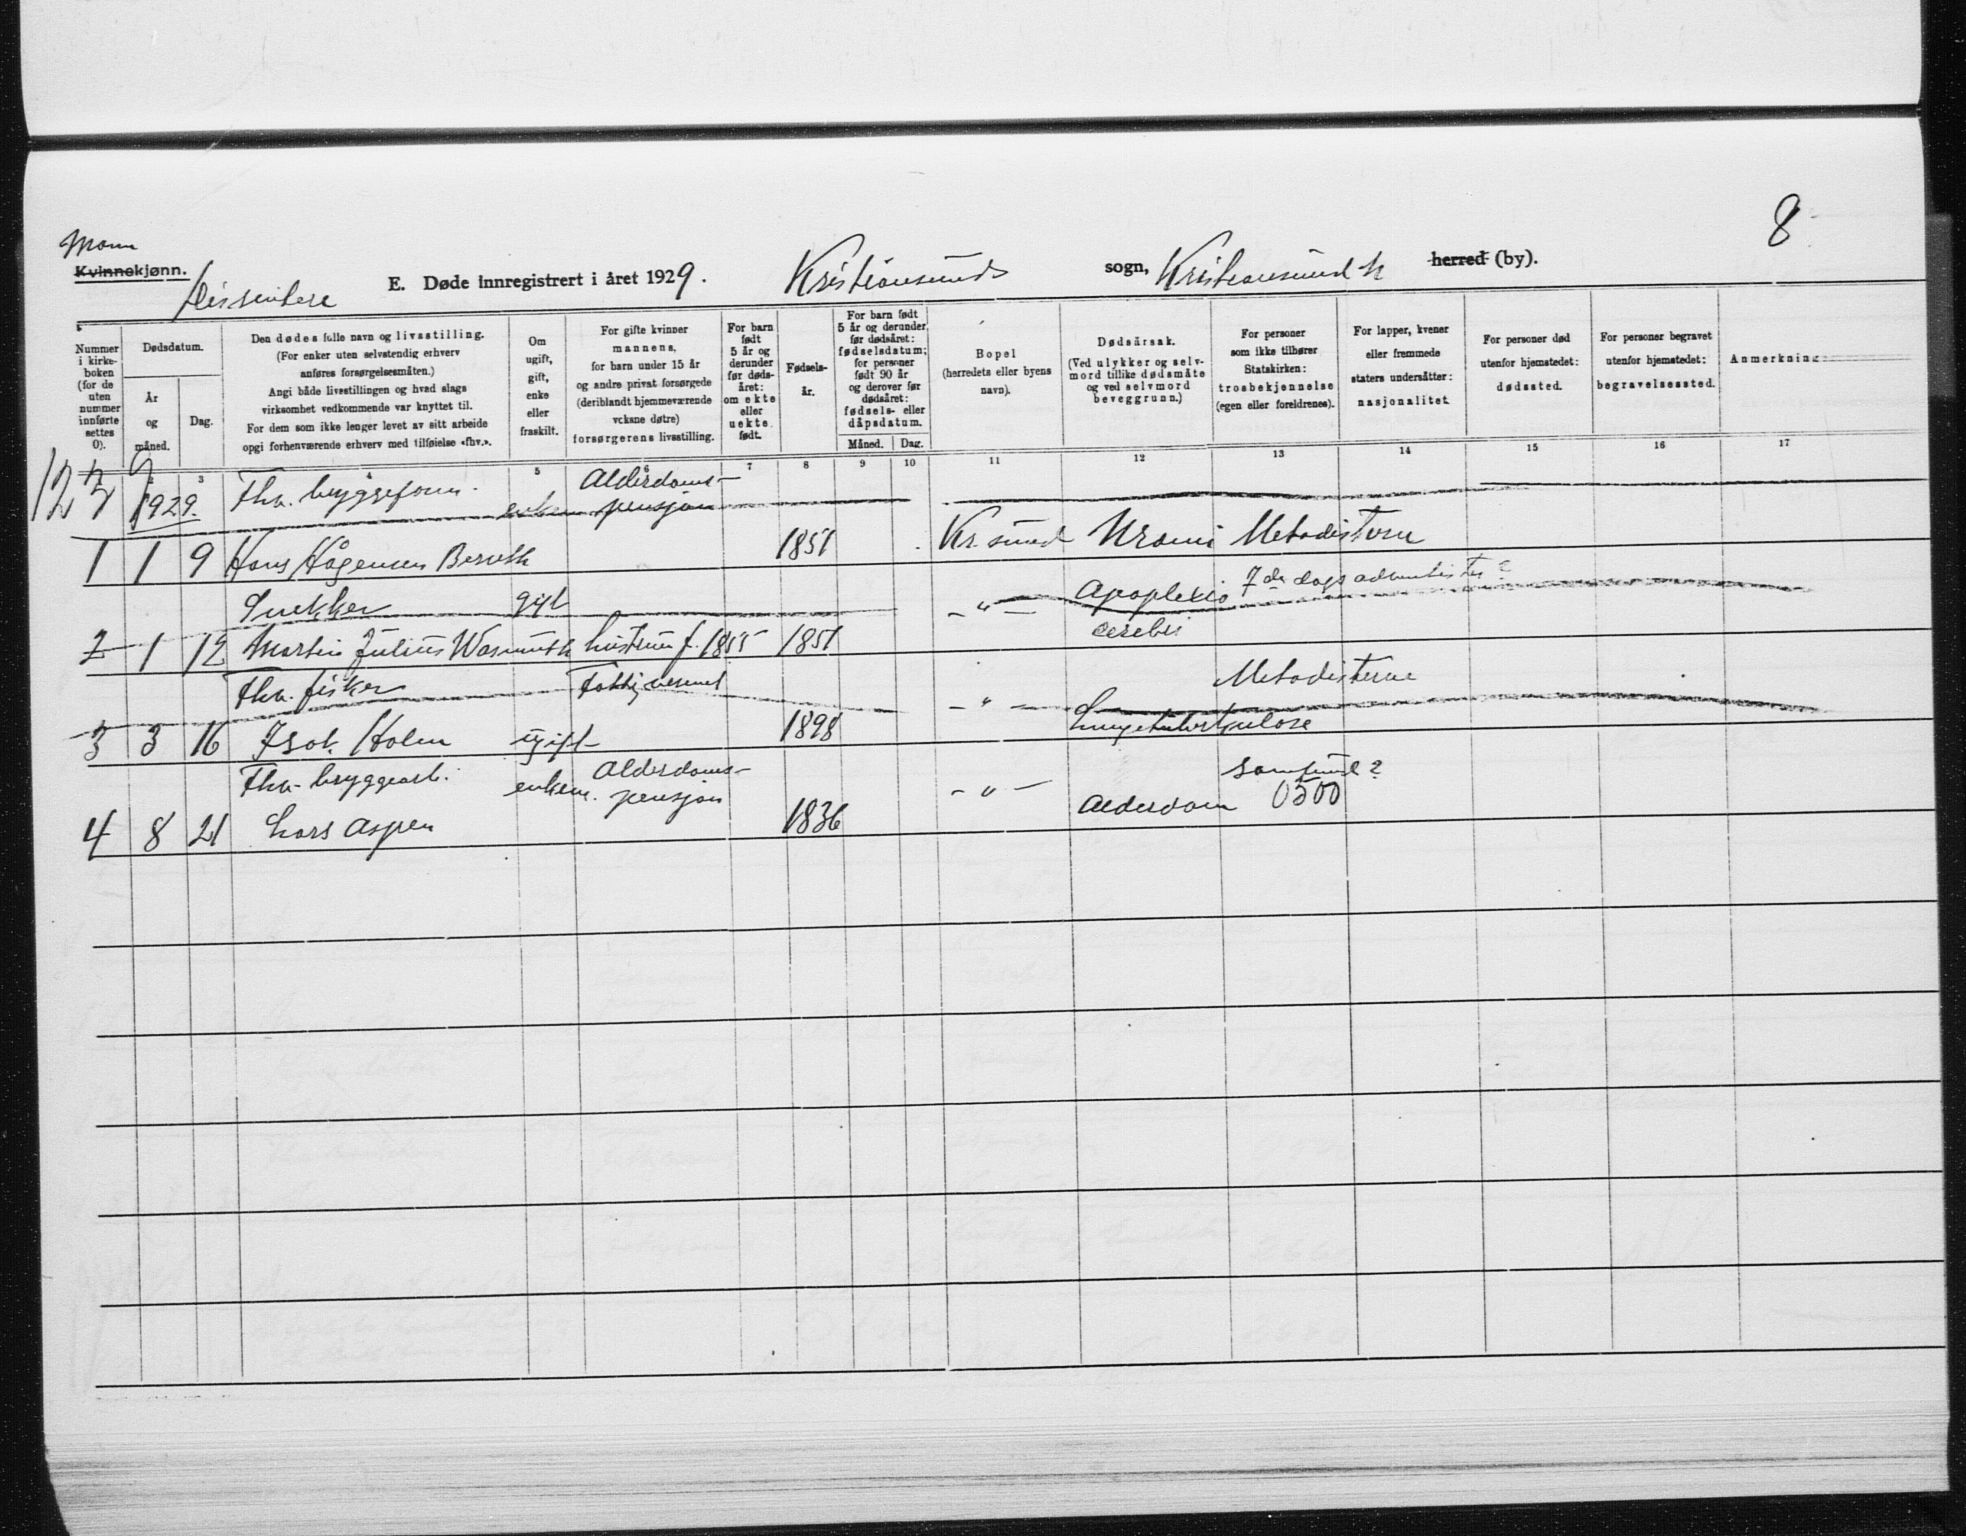 8
Mann
Kvinnekjønn.
Dissentere
E. Døde innregistrert i året 1929.
Kristiansunds sogn, Kristiansund N herred (by).
Nummer i kirkeboken (for de uten nummer innførte settes 0).
Dødsdatum.
År og måned.
Dag.
Den dødes fulle navn og livsstilling.
(For enker uten selvstendig erhverv anføres forsørgelsesmåten.)
Angi både livsstillingen og hvad slags virksomhet vedkommende var knyttet til.
For dem som ikke lenger levet av sitt arbeide opgi forhenværende erhverv med tilføielse «fhv.».
Om ugift, gift, enke eller fraskilt.
For gifte kvinner mannens, for barn under 15 år og andre privat forsørgede (deriblandt hjemmeværende voksne døtre) forsørgerens livsstilling.
For barn født 5 år og derunder før dødsåret: om ekte eller uekte født.
Fødselsår.
For barn født 5 år og derunder før dødsåret: fødselsdatum; for personer født 90 år og derover før dødsåret: fødsels- eller dåpsdatum.
Måned. Dag.
Bopel (herredets eller byens navn).
Dødsårsak.
(Ved ulykker og selvmord tillike dødsmåte og ved selvmord beveggrunn.)
For personer som ikke tilhører Statskirken: trosbekjennelse (egen eller foreldrenes).
For lapper, kvener eller fremmede staters undersåtter: nasjonalitet.
For personer død utenfor hjemstedet: dødssted.
For personer begravet utenfor hjemstedet: begravelsessted.
Anmerkning
3 4 5 6 7 8 9 10 11 12 13 14 15 16 17
1929. Fhv. bryggeform. enkem. Alderdoms-pensjon
1 1 9 Hans Hågensen 1851 Kr.sund Uremi Metodisterne
Snekker gift -"- Apoplexia cerebri 7de dags adventister?
2 1 12 Martin Julius Wasmuth hustrun f. 1855 1851
Fhv. fisker Fattigvesenet -"- Metodisterne
3 3 16 Isak Holen ugift 1898 Lungetuberkulose
Fhv. bryggearb. enkem. Alderdoms-pensjon -"- samfund?
4 8 21 Lars Aspen 1836 Alderdom 0500